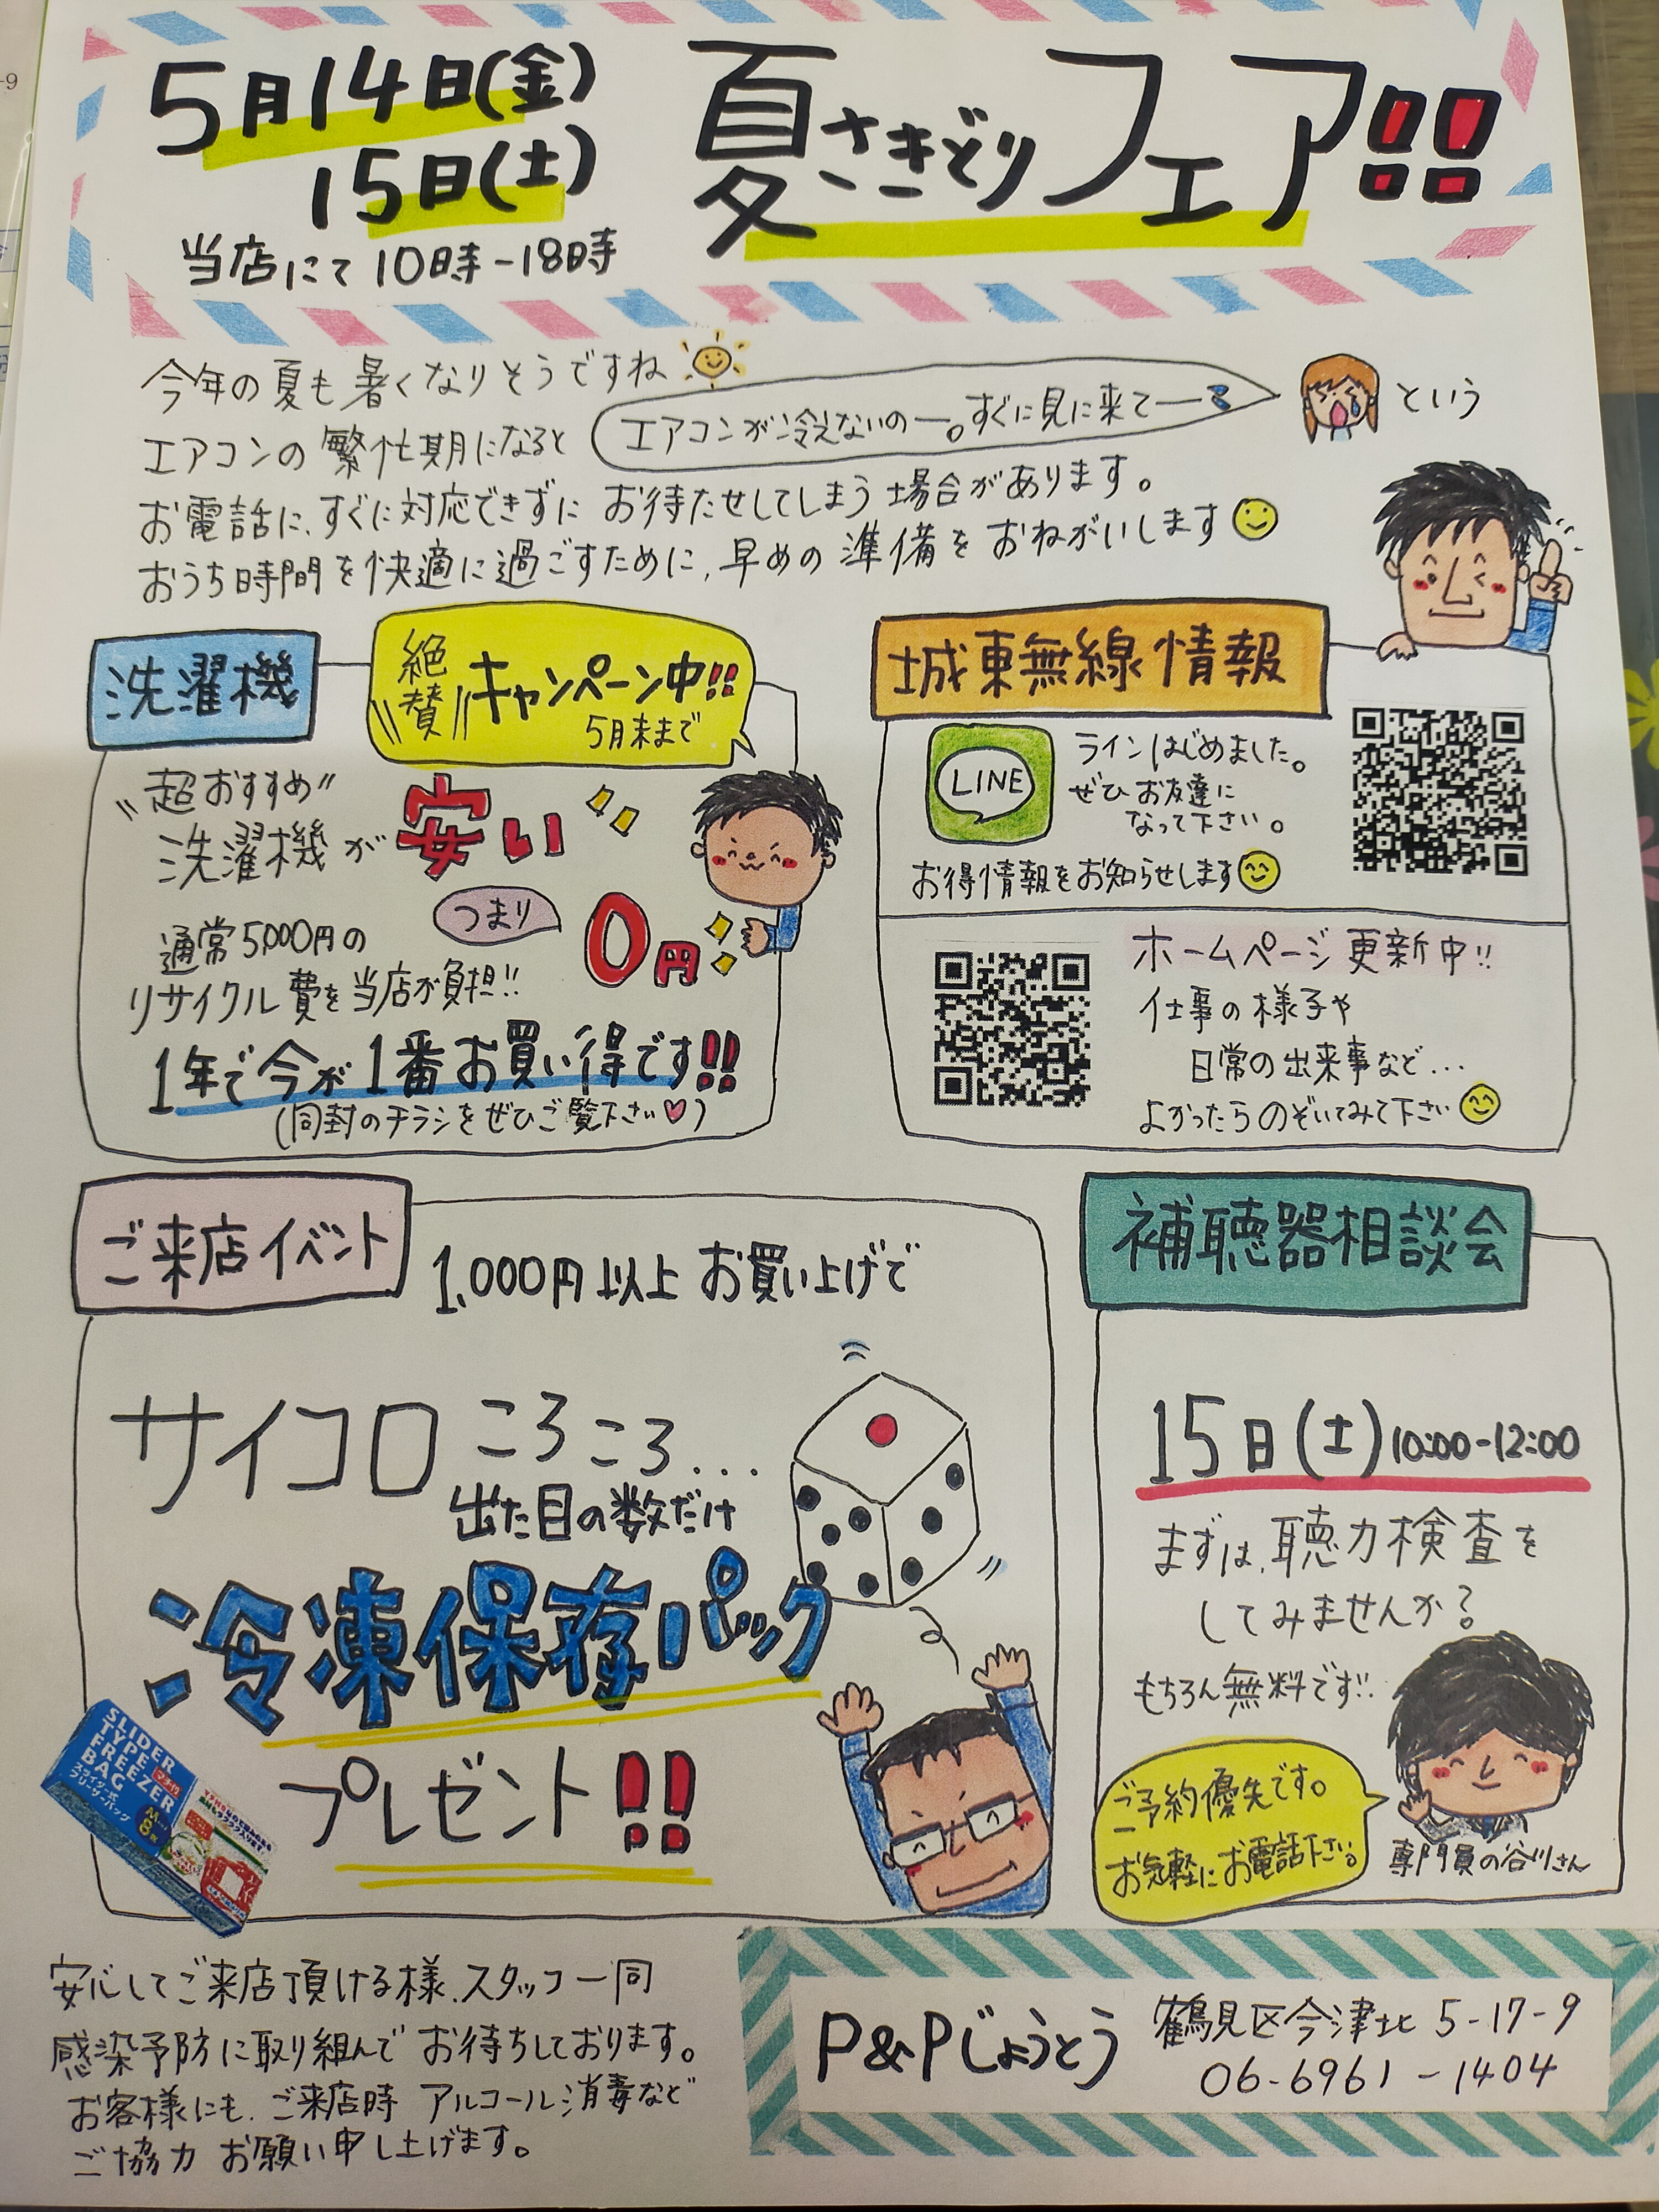 5月14日(金)
15日(土)
当店にて 10時-18時
夏さきどりフェア!!
今年の夏も暑くなりそうですね
エアコンの繁忙期になると エアコンが冷えないのー。すぐに見に来てー という
お電話に、すぐに対応できずに お待たせしてしまう場合があります。
おうち時間を快適に過ごすために、早めの準備をおねがいします
洗濯機
絶賛 キャンペーン中!!
5月末まで
超おすすめ
洗濯機が 安い
つまり 0円
通常5,000円の
リサイクル費を当店が負担!!
1年で今が1番お買い得です!!
(同封のチラシをぜひご覧下さい♡)
城東無線情報
LINE
ラインはじめました。
ぜひお友達に
なって下さい。
お得情報をお知らせします
ホームページ更新中!!
仕事の様子や
日常の出来事など...
よかったらのぞいてみて下さい
ご来店イベント
1,000円以上 お買い上げで
サイコロ ころころ...
出た目の数だけ
冷凍保存パック
プレゼント!!
SLIDER
TYPE
FREEZER
BAG
マチ付
スライダー式
フリーザーバッグ
M
8
補聴器相談会
15日(土)10:00-12:00
まずは、聴力検査を
してみませんか?
もちろん無料です!!
ご予約優先です。
お気軽にお電話下さい。
専門員の谷川さん
安心してご来店頂ける様、スタッフ一同
感染予防に取り組んで お待ちしております。
お客様にも、ご来店時 アルコール消毒など
ご協力 お願い申し上げます。
P&Pじょうとう
鶴見区今津北 5-17-9
06-6961-1404